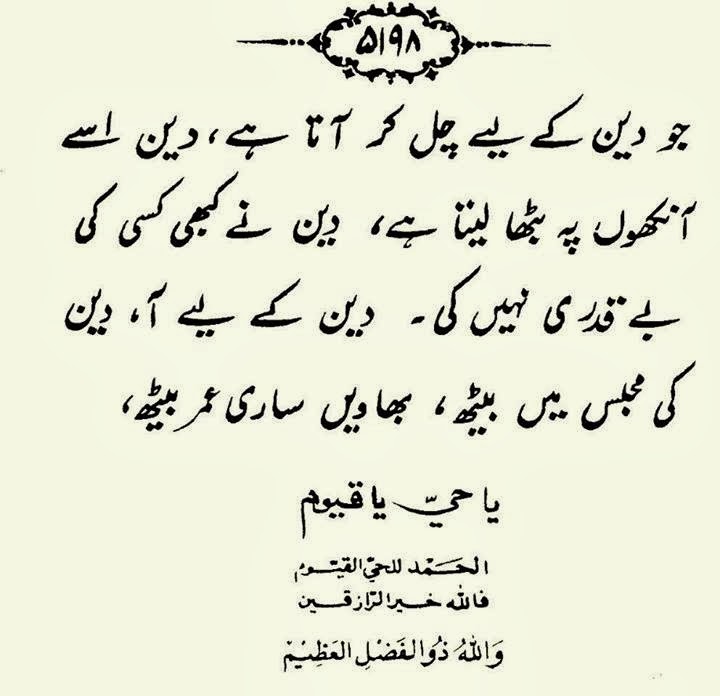 ۵۱۹۸
جو دین کے لیے چل کر آتا ہے، دین اسے
آنکھوں پہ بٹھا لیتا ہے، دین نے کبھی کسی کی
بے قدری نہیں کی۔ دین کے لیے آ، دین
کی مجلس میں بیٹھ، بھاویں ساری عمر بیٹھ،
یا حيّ یا قیوم
الحَمْد للحيّ القیّوم
فالله خیر الرّازقین
وَاللهُ ذُو الفَضْلِ العَظِیْمِ